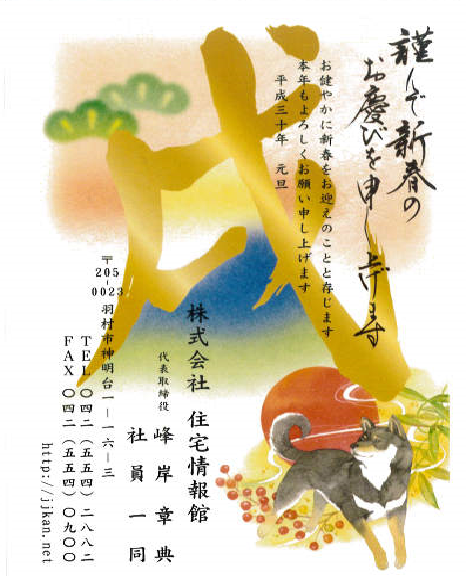 謹んで新春の
お慶びを申し上げます
お健やかに新春をお迎えのことと存じます
本年もよろしくお願い申し上げます
平成三十年 元旦
戌
株式会社 住宅情報館
代表取締役 峰岸章典
社員一同
〒205-0023 羽村市神明台一―一六―三
TEL 〇四二(五五四)二八八二
FAX 〇四二(五五四)〇九〇〇
http://jjkan.net